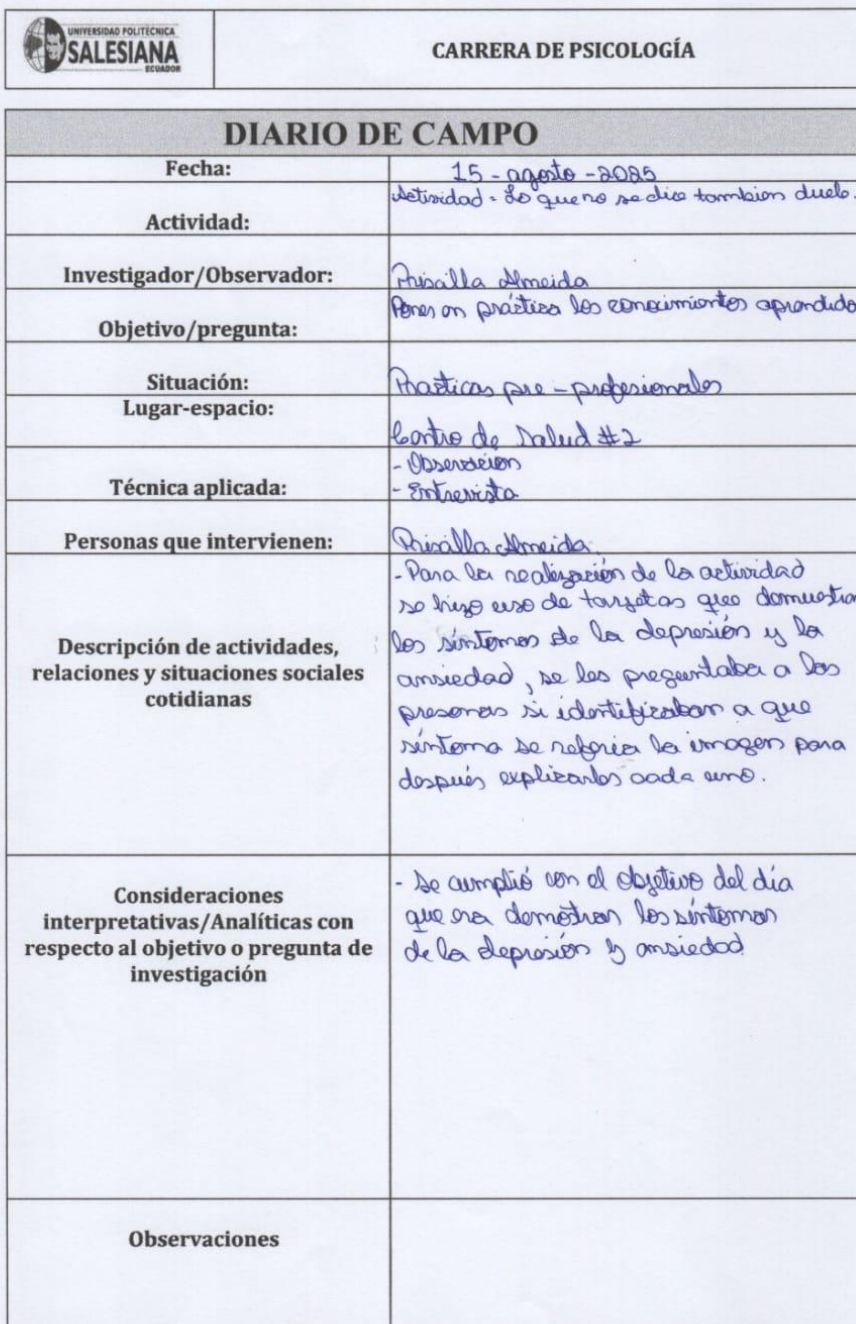 UNIVERSIDAD POLITÉCNICA
SALESIANA
ECUADOR
CARRERA DE PSICOLOGÍA
DIARIO DE CAMPO
Fecha:
15 - agosto - 2025
Actividad:
Actividad - Lo que no se dice tambien duele.
Investigador/Observador:
Priscilla Almeida
Objetivo/pregunta:
Poner en práctica los conocimientos aprendido
Situación:
Practicas pre - profesionales
Lugar-espacio:
Centro de Salud #2
Técnica aplicada:
- Observación
- Entrevista
Personas que intervienen:
Priscilla Almeida
Descripción de actividades,
relaciones y situaciones sociales
cotidianas
- Para la realización de la actividad
se hizo uso de tarjetas que demuestran
los síntomas de la depresión y la
ansiedad, se les preguntaba a las
presonas si identificaban a que
síntoma se referia la imagen para
después explicarlos cada uno.
Consideraciones
interpretativas/Analíticas con
respecto al objetivo o pregunta de
investigación
- Se cumplió con el objetivo del día
que era demostrar los síntomas
de la depresión y ansiedad
Observaciones